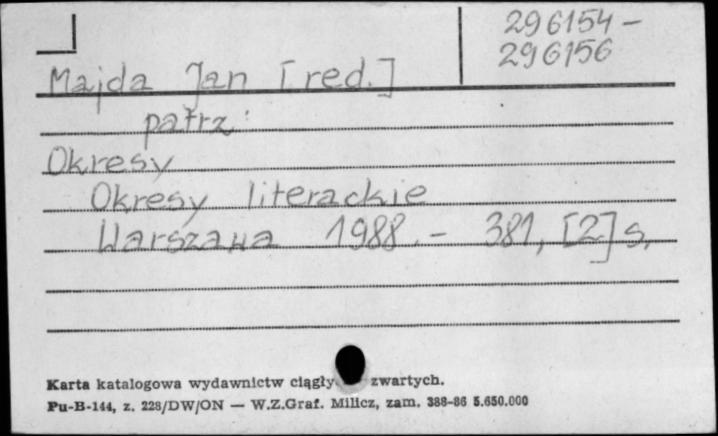 296154 -
296156
Majda Jan [red.]
patrz:
Okresy
Okresy literackie
Warszawa 1988. - 381, [2] s.
Karta katalogowa wydawnictw ciągły zwartych.
Pu-B-144, z. 228/DW/ON — W.Z.Graf. Milicz, zam. 388-86 5.650.000